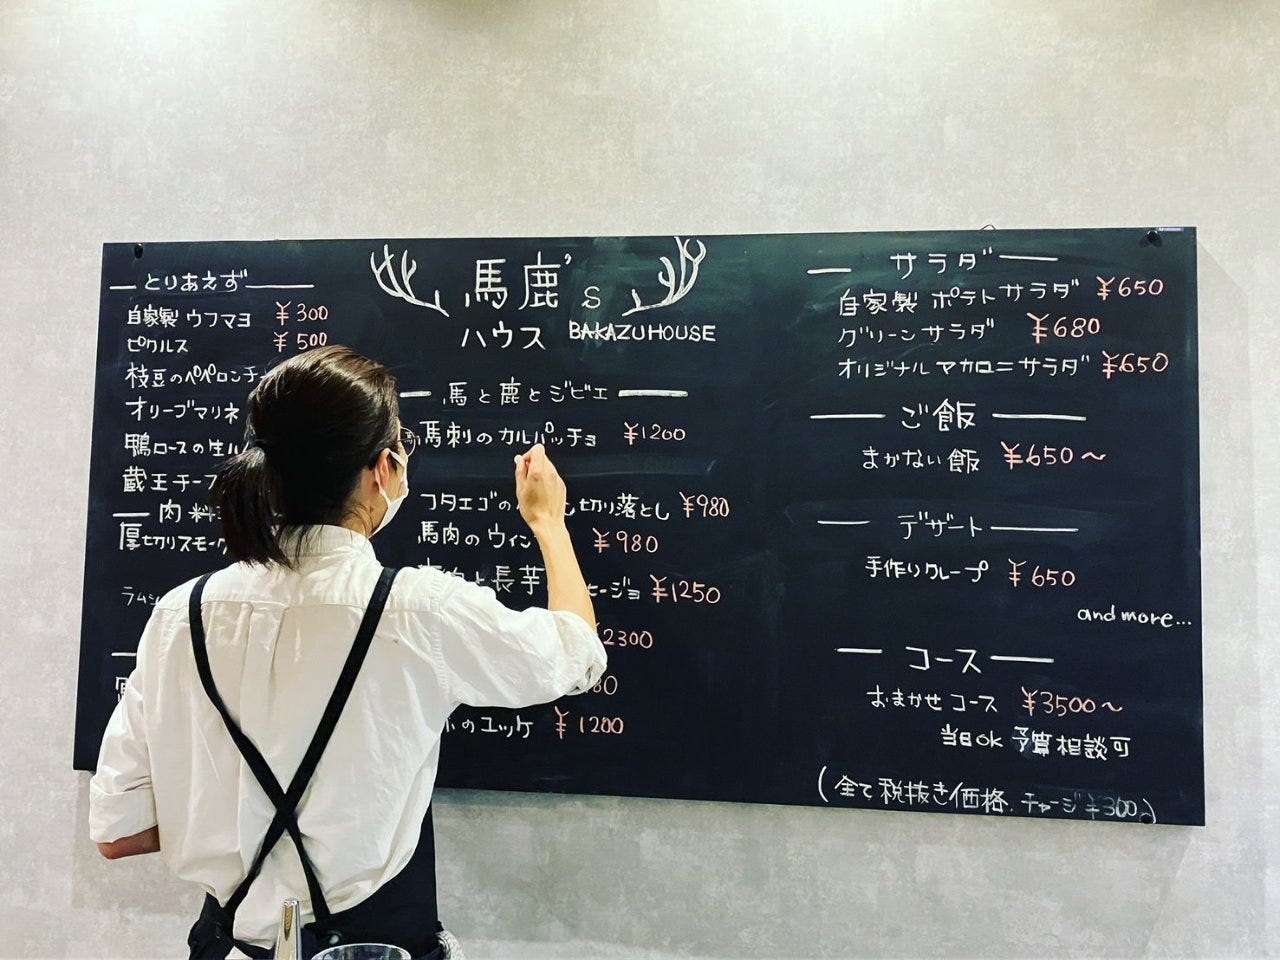 とりあえず
自家製 ウフマヨ ¥300
ピクルス ¥500
枝豆のペペロンチ
オリーブマリネ
鴨ロースの生ハ
蔵王チーズ
肉料
厚切りスモーク
ラムシ
馬鹿's
ハウス BAKAZUHOUSE
馬と鹿とジビエ
馬刺のカルパッチョ ¥1200
フタエゴの し切り落とし ¥980
馬肉のウィン ¥980
と長芋 ¥1250
¥2300
80
のユッケ ¥1200
サラダ
自家製 ポテトサラダ ¥650
グリーンサラダ ¥680
オリジナルマカロニサラダ ¥650
ご飯
まかない飯 ¥650〜
デザート
手作りクレープ ¥650
and more...
コース
おまかせコース ¥3500〜
当日ok 予算相談可
(全て税抜き価格、チャージ¥300)